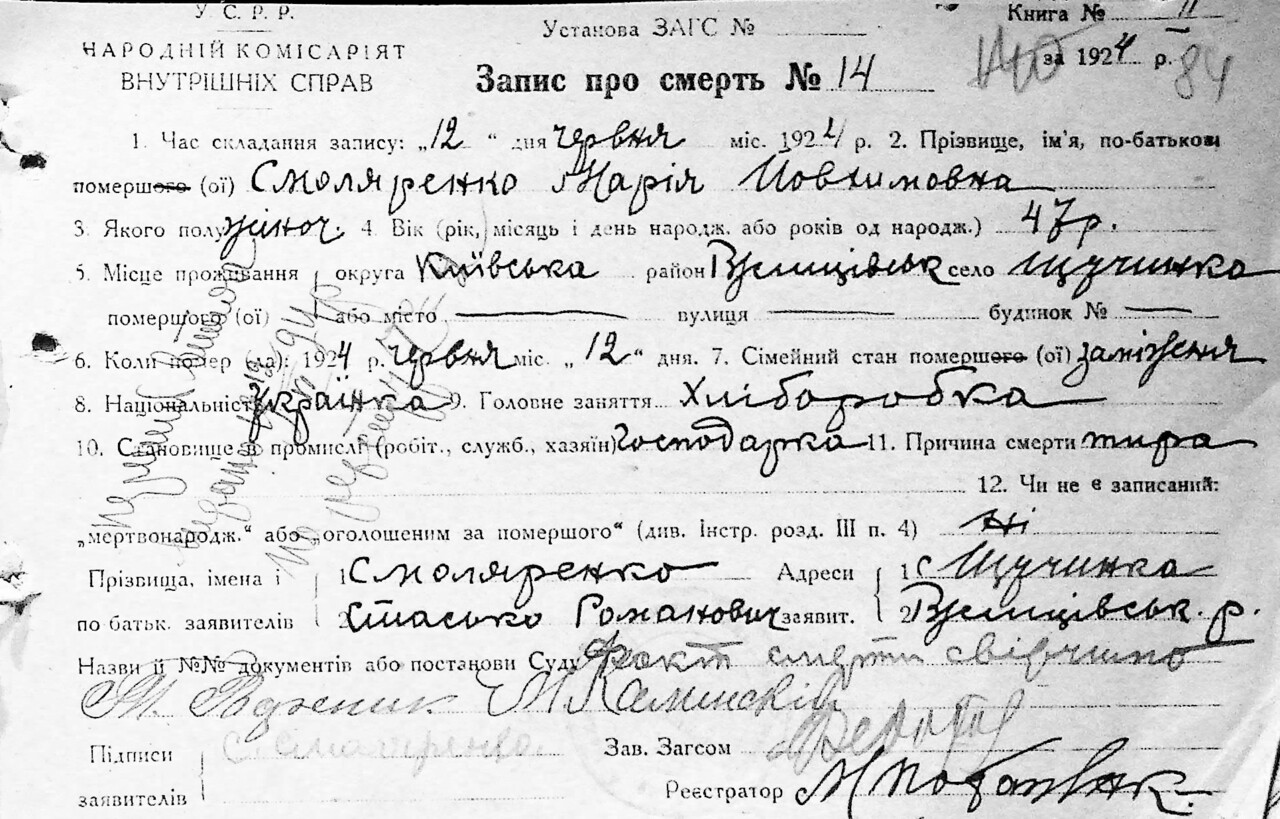 У. С. Р. Р.
НАРОДНІЙ КОМІСАРІЯТ
ВНУТРІШНІХ СПРАВ
Установа ЗАГС №
Книга № II
за 1924 р. 84
Запис про смерть № 14
1. Час складання запису: „12 “ дня червня міс. 1924 р. 2. Прізвище, ім'я, по-батькові
помершого (ої) Смоляренко Марія Йовхимовна
3. Якого полу жіноч. 4. Вік (рік, місяць і день народж. або років од народж.) 47 р.
5. Місце проживання округа Київська район Ржищівськ село Щучинка
помершого (ої) або місто — вулиця — будинок № —
6. Коли помер (ла): 1924 р. червня міс. „ 12 “ дня. 7. Сімейний стан помершого (ої) заміжня
8. Національність українка 9. Головне заняття Хліборобка
10. Становище в промислі (робіт., служб., хазяїн) господарка 11. Причина смерти
12. Чи не є записаний:
„мертвонародж.“ або „оголошеним за помершого“ (див. Інстр. розд. III п. 4) Ні
Прізвища, імена і 1 Смоляренко Адреси 1 с Щучинка
по батьк. заявителів 2 Стасько Романович заявит. 2 Ржищівськ. р.
Назви й №№ документів або постанови Суду Факт смерти свідчимо
Підписи Зав. Загсом
заявителів Реєстратор